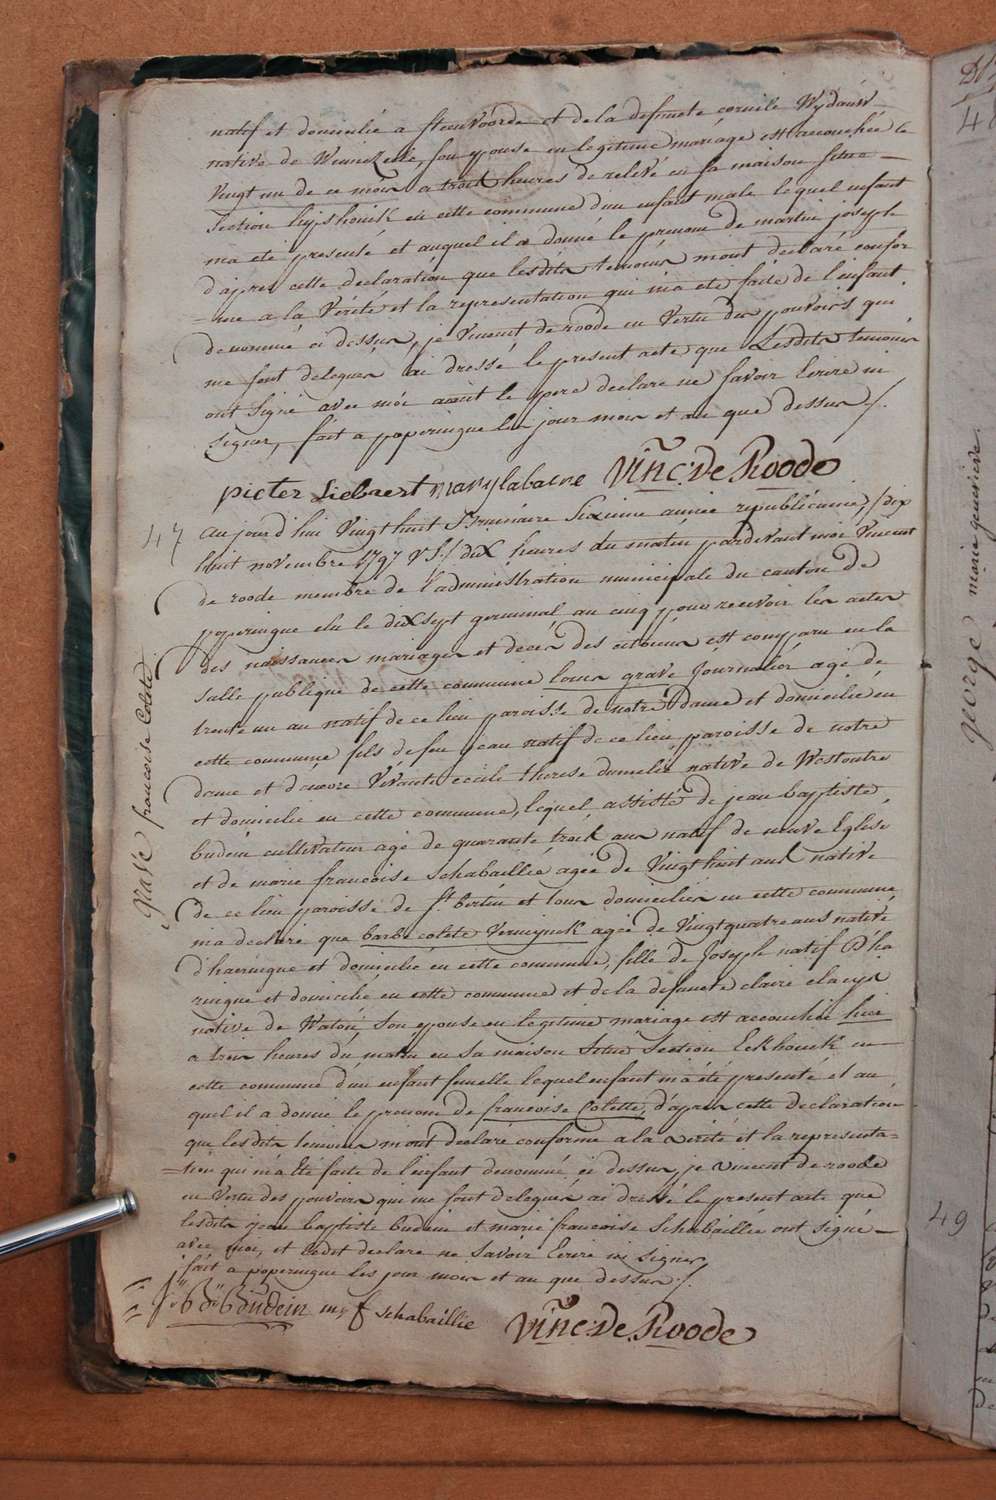 natif et domicilié a steenvoorde et de la defunte cornile Wydauw
native de Winnezeele, son epouse en legitime mariage est accouchée le
Vingt un de ce mois a trois heures de relevé en sa maison situe
Section hipshouck en cette commune d'un enfant male lequel enfant
ma eté presenté et auquel il a donné le prenom de martin joseph
d'apres cette declaration que lesdits temoins mont declaré confor
=me a la Vérité et la representation qui ma eté faite de l'enfant
denommé ci dessus, je Vincent de roode en Vertu des pouvoirs qui
me sont delegués ai dressé le present acte que Lesdits temoins
ont signé avec moi aiant le pere declare ne savoir Ecrire ni
signer, fait a poperingue les jour mois et an que dessus /.
pieter Liebaert Vinc: De Roode
47 aujourd'hui Vingt huit Brumaire Sixieme année republicaine, / dix
huit novembre 1797 V S./ dix heures du matin pardevant moi Vincent
de roode membre de l'administration municipale du canton de
poperingue elu le dixsept germinal an cinq pour recevoir les actes
des naissances mariages et deces des citoiens est comparu en la
salle publique de cette commune louis grave Journalier agé de
trente un an natif de ce lieu paroisse de notre dame et domicilié en
cette commune fils de feu jean natif de ce lieu paroisse de notre
dame et d'encore Vivante cecile therese dumelie native de Westoutre
et domicilie en cette commune, lequel assisté de jean baptiste
budein cultivateur agé de quarante trois ans natif de neuve Eglise
et de marie francoise schabaillié agée de Vingt huit ans native
de ce lieu paroisse de St. bertin et tous domiciliés en cette commune
ma declaré que barbe colete Vermynck agée de Vingt quatre ans native
d'haeringue et domicilié en cette commune, fille de Joseph natif D'ha
ringue et domicilié en cette commune et de la defunte claire claeys
native de Watou, Son epouse en legitime mariage est accouchée hier
a trois heures du matin en sa maison Situé Section Eekhouck en
cette commune d'un enfant femelle lequel enfant m'a été presenté et au
quel il a donné le prenom de francoise Colette, d'apres cette declaration
que lesdits temoins m'ont declaré conforme a la verité et la representa=
=tion qui m'a Eté faite de l'enfant denommé ci dessus, je vincent de roode
en Vertu des pouvoirs qui me sont delegués ai dressé le present acte que
lesdits jean baptiste budein et marie francoise Schabaillié ont signé
avec moi, et ledit declare ne savoir Ecrire ni signer
fait a poperingue les jour mois et an que dessus /.
J: B: Budein m, f schabaillie Vinc: De Roode
gravé francoise Colete
george marie genevieve
48
49